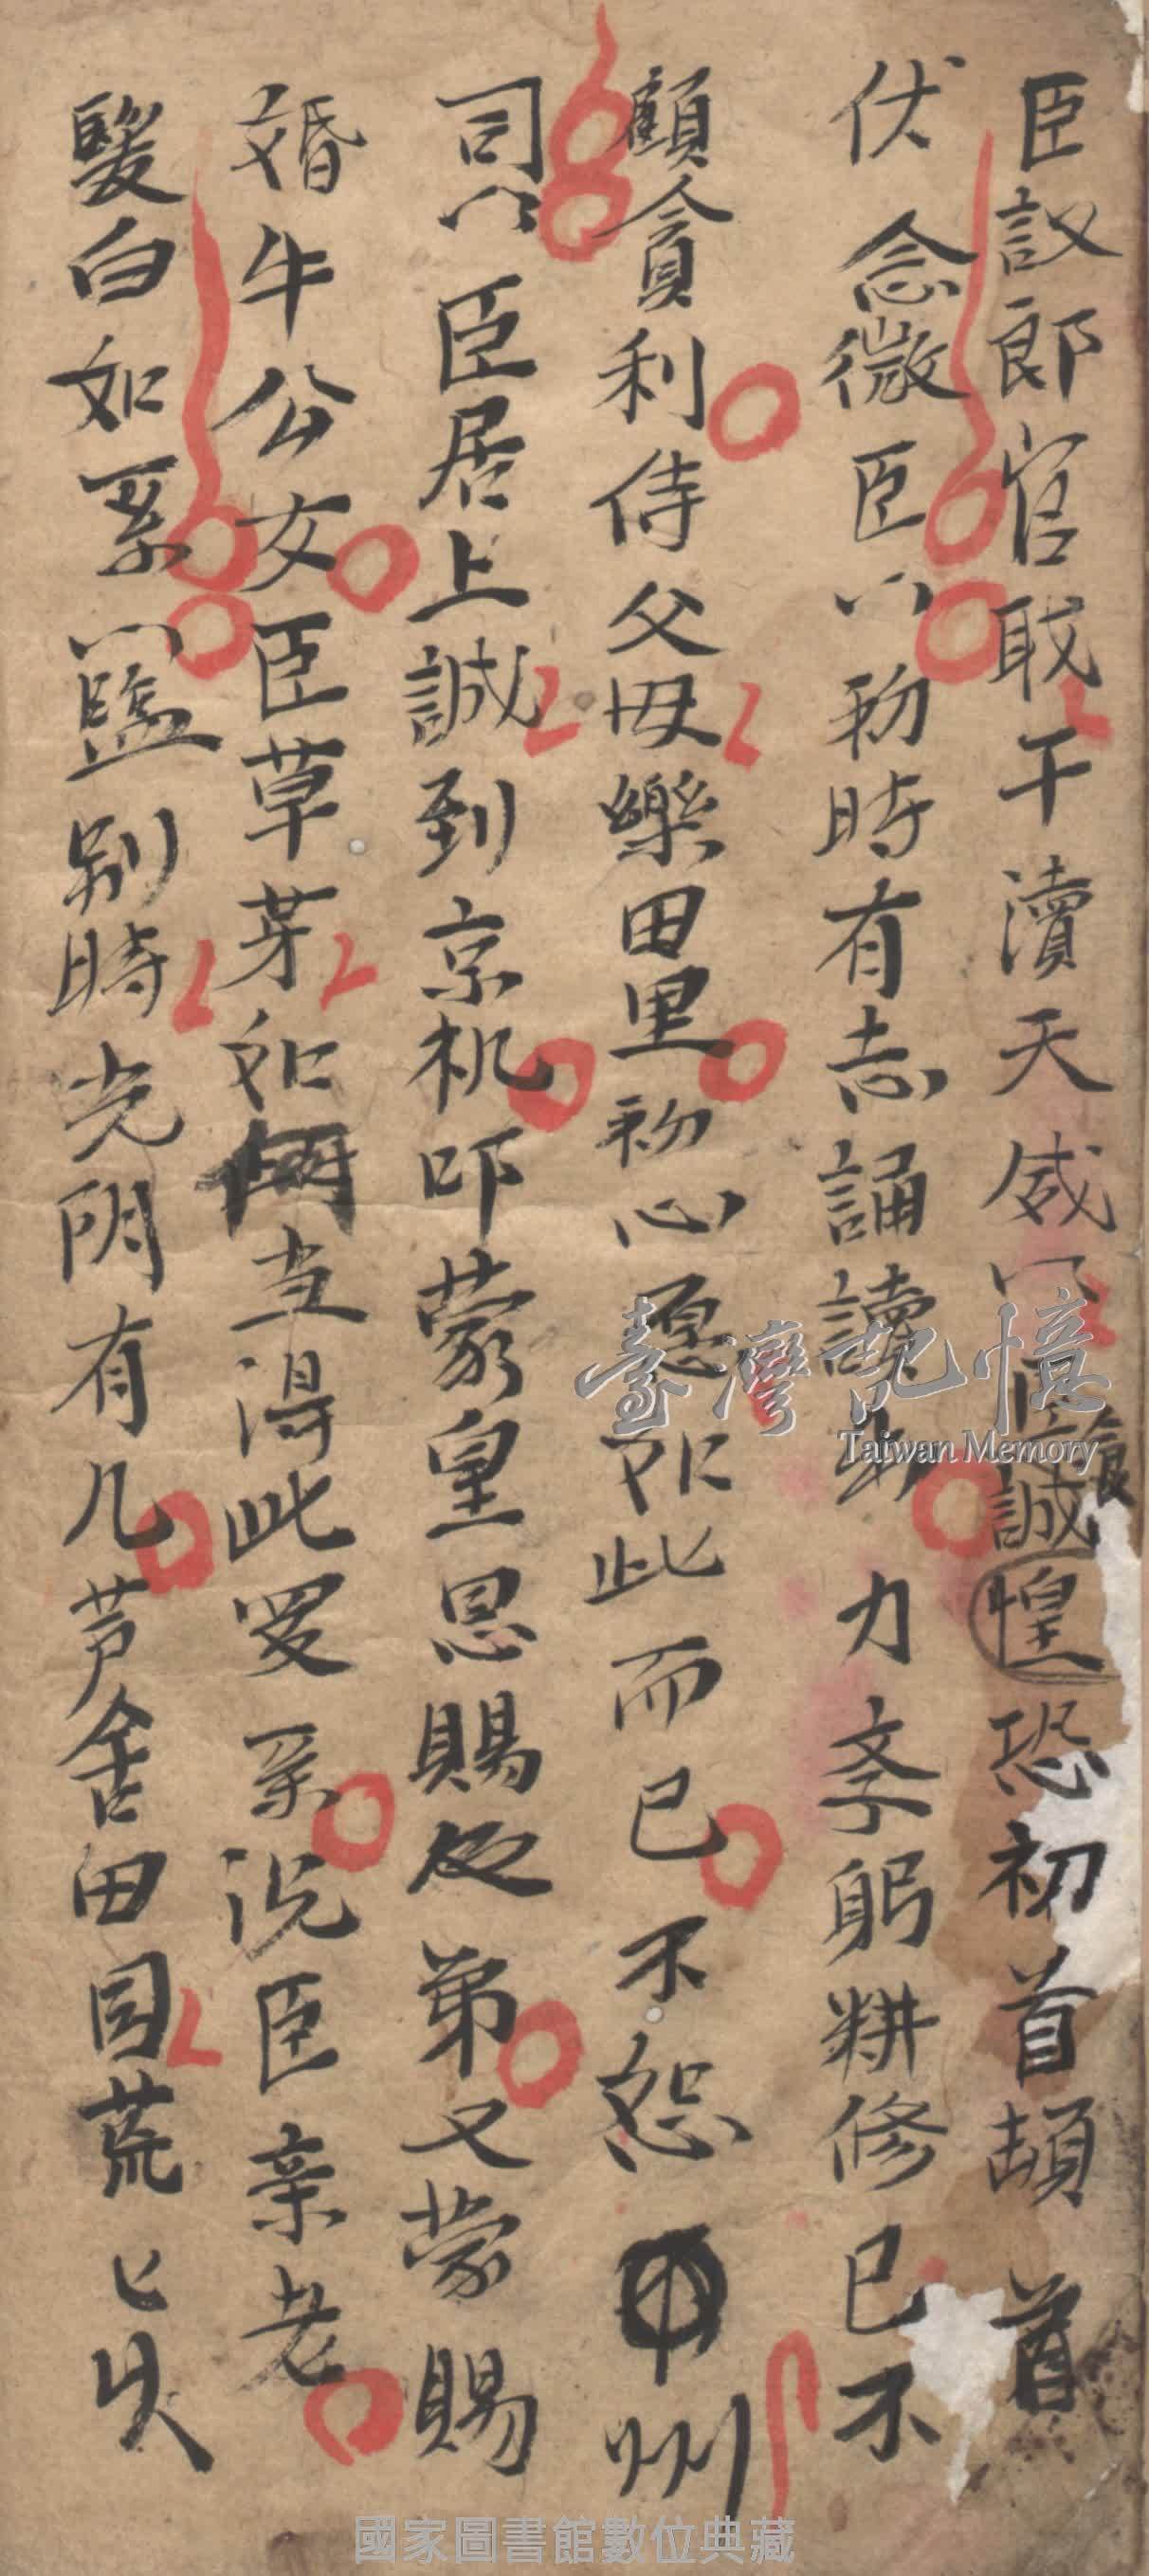 臣議郎官敢干瀆天威以誠惶恐初首頓首
伏念微臣以初時有志誦讀出力孝躬耕修已不
顧貪利侍父母樂田里初心愿如此而已不怨州
司以臣居上誠到京机叩蒙皇恩賜及弟又蒙賜
婚牛公女臣草芽如當得此受系况臣亲老
髮白如系以臨别時光阴有几芦舍田园荒七久
臺灣記憶
Taiwan Memory
國家圖書館數位典藏